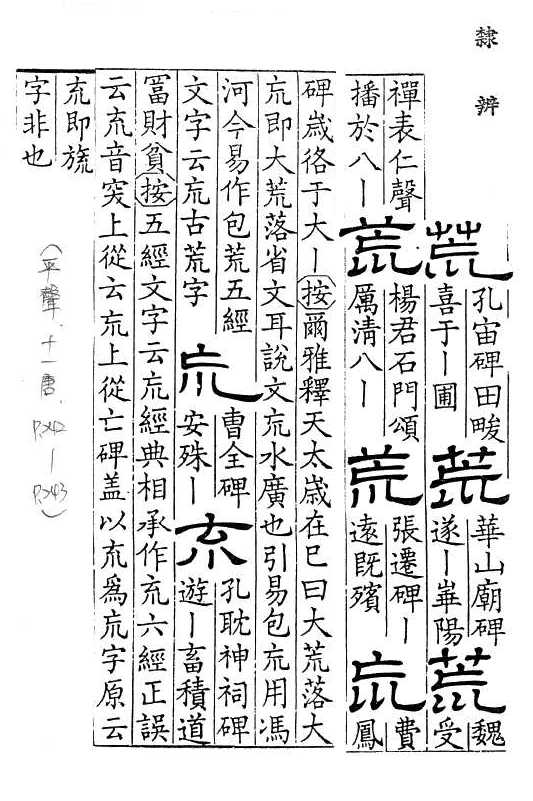 隸辨
荒
孔宙碑田畯
喜于丨圃
荒
華山廟碑
遂丨崋陽
荒
魏
受
禪表仁聲
播於八丨
荒
楊君石門頌
厲清八丨
荒
張遷碑丨
遠既殯
巟
費
鳳
碑歲佫于大丨按爾雅釋天太歲在巳曰大荒落大
巟即大荒落省文耳說文巟水廣也引易包巟用馮
河今易作包荒五經
文字云巟古荒字
巟
曹全碑
安殊丨
㐬
孔耽神祠碑
遊丨畜積道
富財貧按五經文字云巟經典相承作㐬六經正誤
云㐬音突上從云巟上從亡碑盖以㐬爲巟字原云
㐬即旒
字非也
(平聲.十一唐.P.242—P.243)